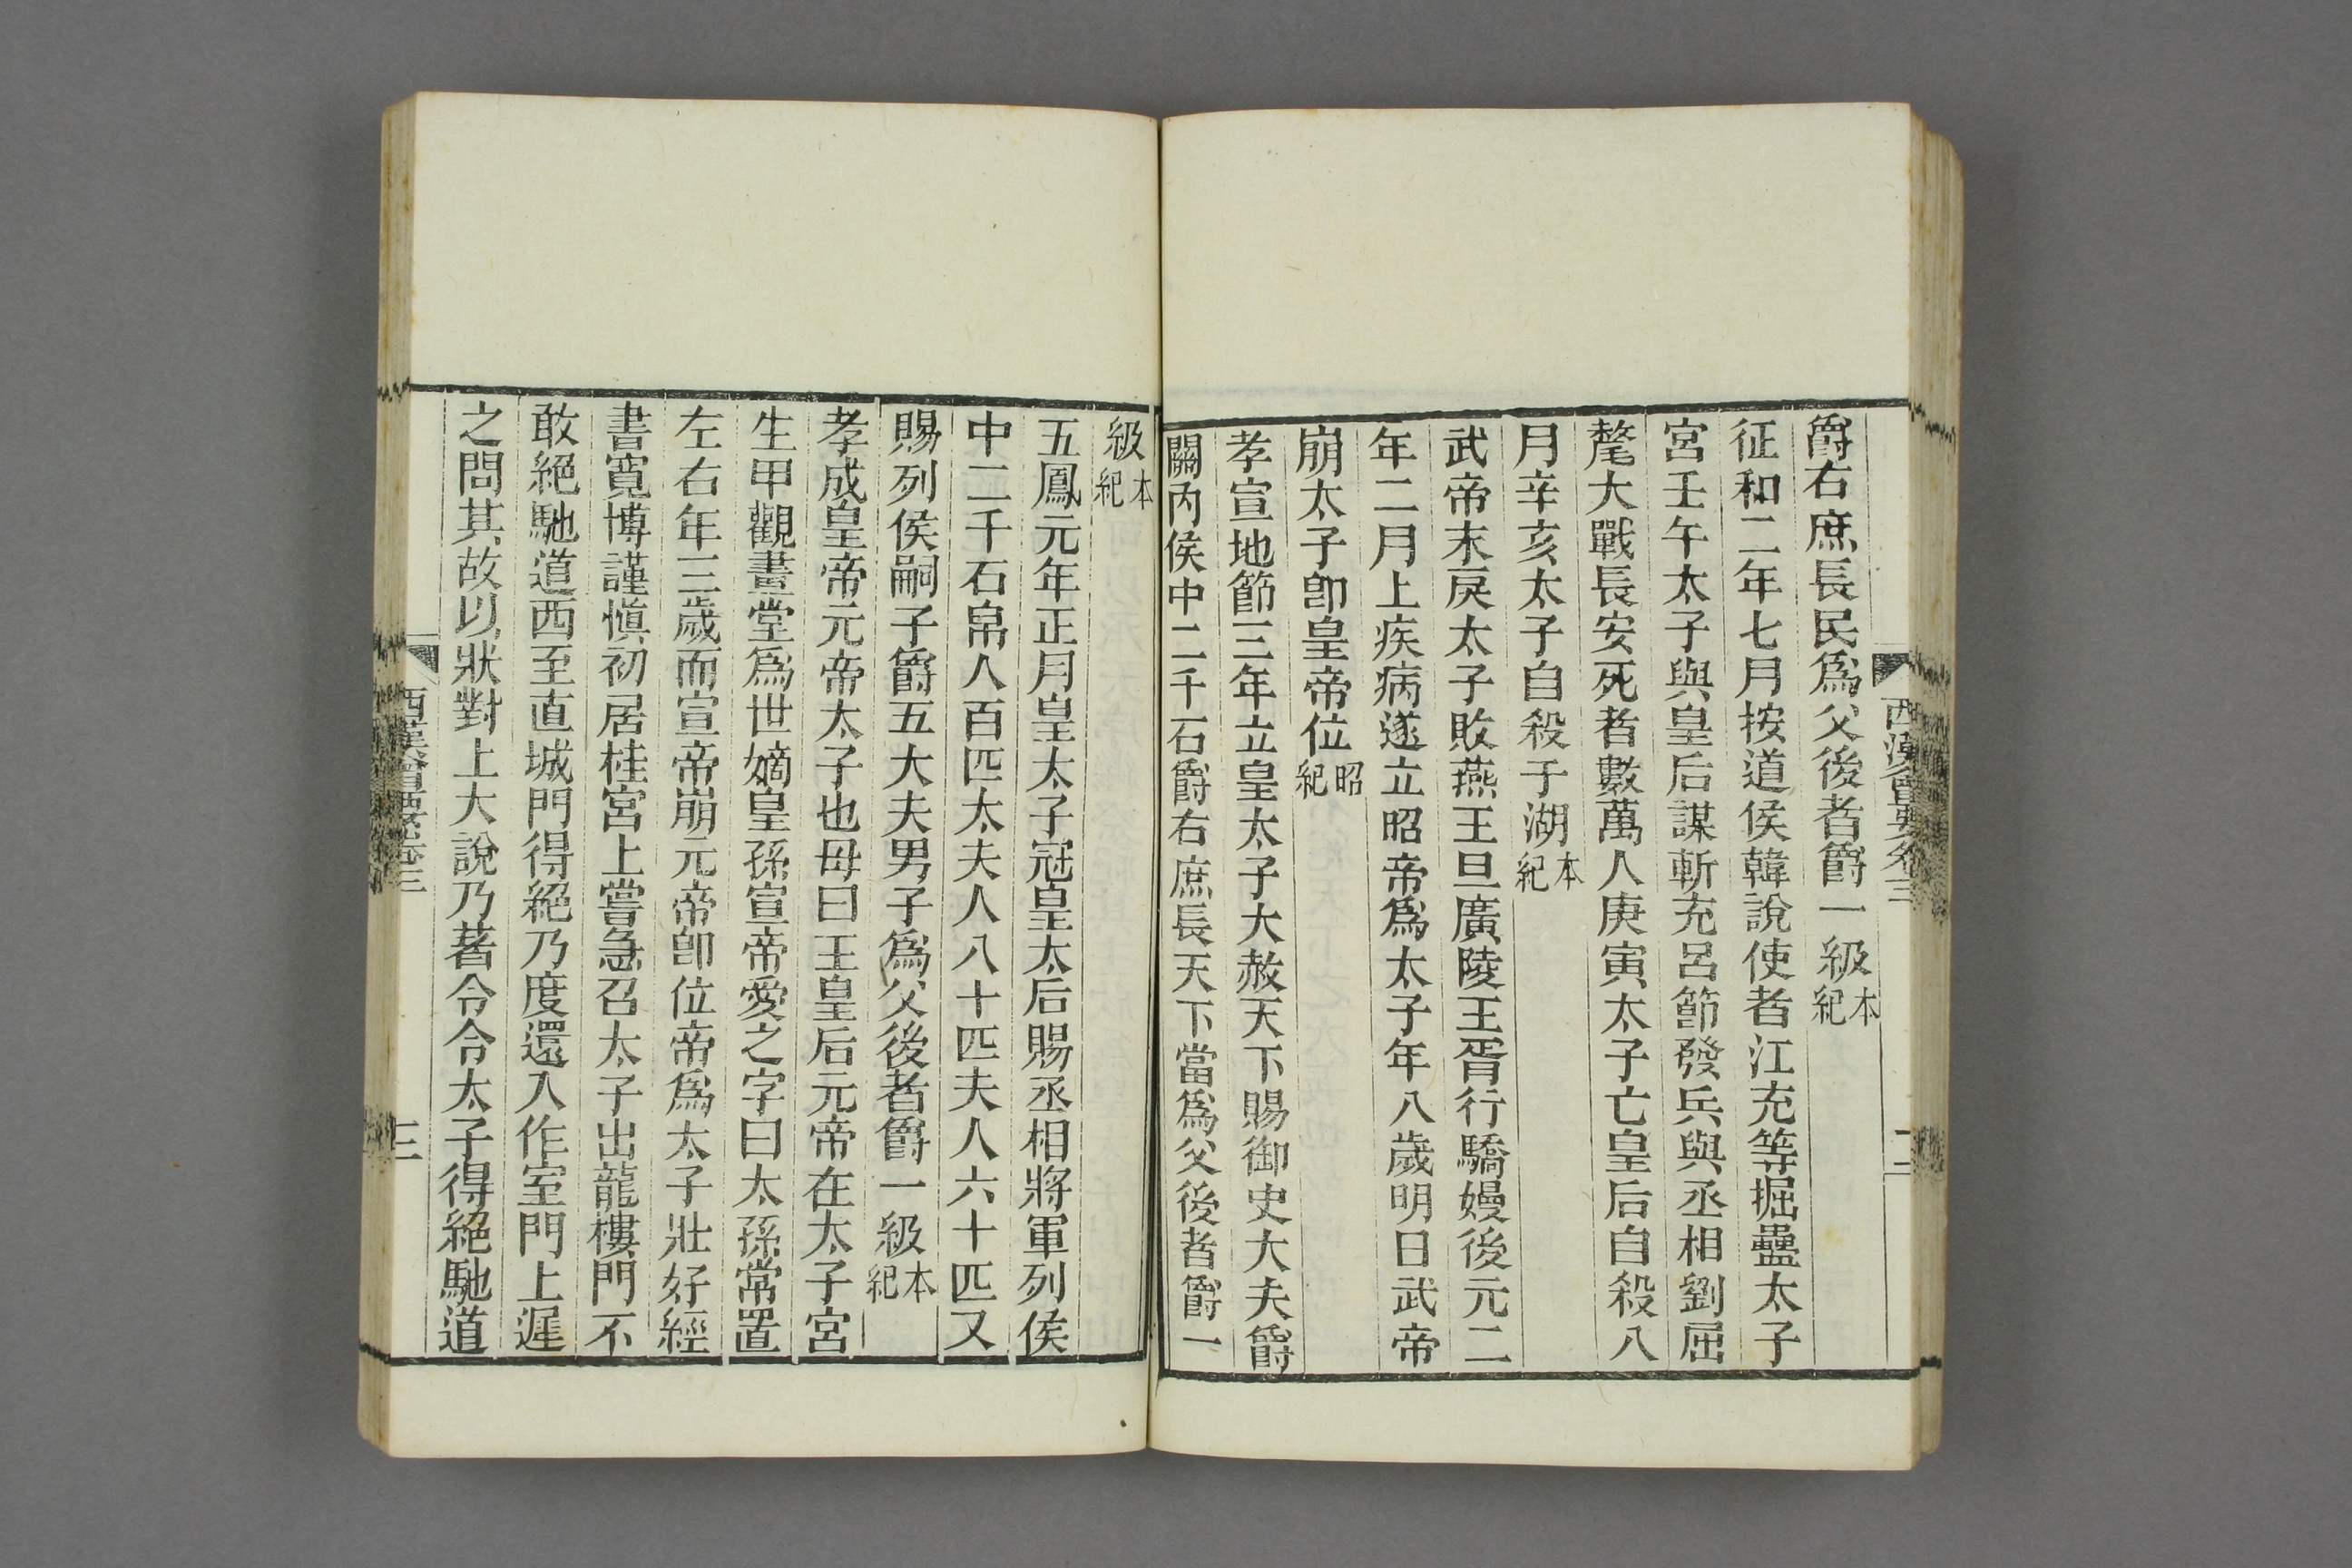 西漢會要卷三
二
爵右庶長民爲父後者爵一級本紀
征和二年七月按道侯韓說使者江充等掘蠱太子
宮壬午太子與皇后謀斬充呂節發兵與丞相劉屈
氂大戰長安死者數萬人庚寅太子亡皇后自殺八
月辛亥太子自殺于湖本紀
武帝末戾太子敗燕王旦廣陵王胥行驕嫚後元二
年二月上疾病遂立昭帝爲太子年八歲明日武帝
崩太子卽皇帝位昭紀
孝宣地節三年立皇太子大赦天下賜御史大夫爵
關內侯中二千石爵右庶長天下當爲父後者爵一
級本紀
五鳳元年正月皇太子冠皇太后賜丞相將軍列侯
中二千石帛人百匹太夫人八十匹夫人六十匹又
賜列侯嗣子爵五大夫男子爲父後者爵一級本紀
孝成皇帝元帝太子也母曰王皇后元帝在太子宮
生甲觀畫堂爲世嫡皇孫宣帝愛之字曰太孫常置
左右年三歲而宣帝崩元帝卽位帝爲太子壯好經
書寬博謹愼初居桂宮上嘗急召太子出龍樓門不
敢絕馳道西至直城門得絕乃度還入作室門上遲
之問其故以狀對上大說乃著令令太子得絕馳道
西漢會要卷三
三